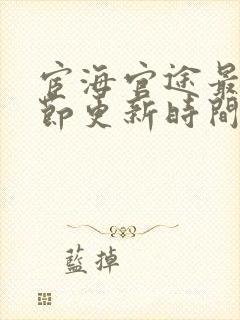 宦海官途最
節更新時間
藍掉